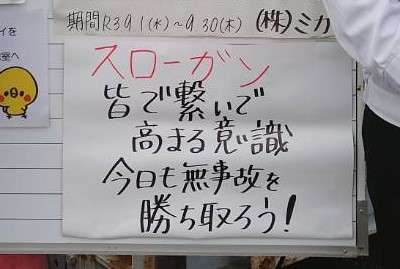 期間R3 9.1(水)～9.30(木) (株)ミカ
スローガン
皆で繋いで
高まる意識
今日も無事故を
勝ち取ろう!
イを
室へ